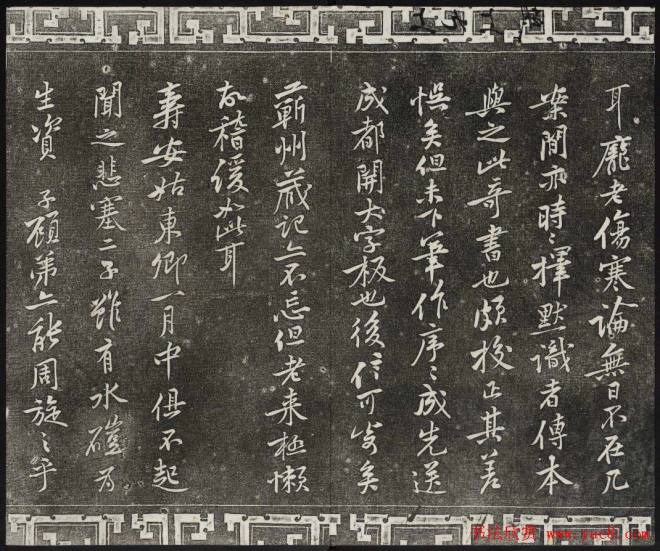 耳龐老傷寒論無日不在几
案間亦時〻擇默識者傳本
與之此奇書也頗校正其差
悞矣但未下筆作序〻成先送
成都開大字板也後信可寄矣
蘄州藏記亦不忘但老来極懶
故稽缓如此耳
壽安姑東卿一月中俱不起
聞之悲塞二子雖有水磑为
生資 子顧弟亦能周旋之乎
书法欣赏 www.yac8.com